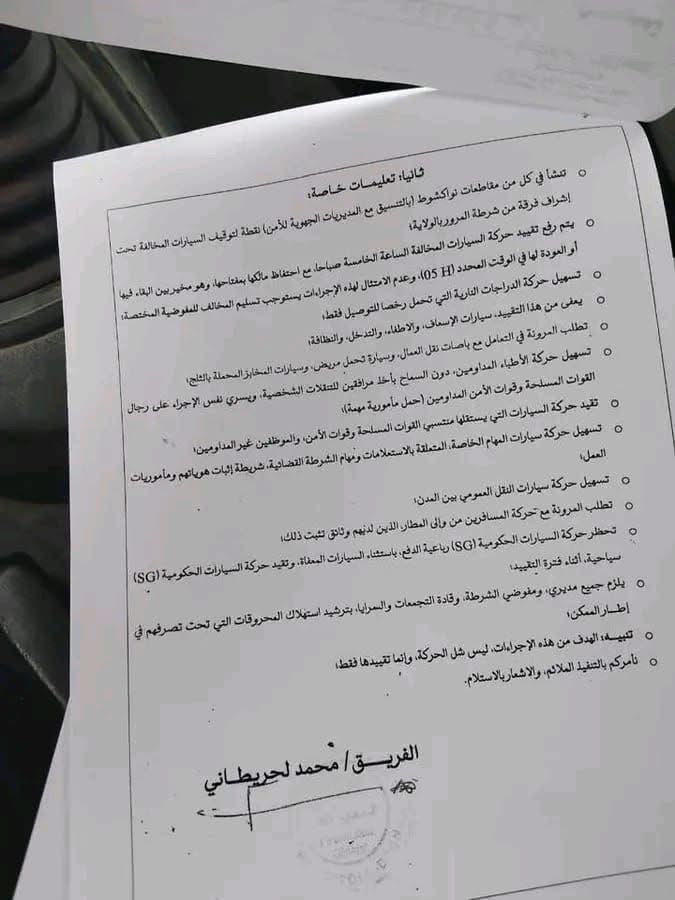 ثانيا: تعليمات خاصة:
○ تنشأ في كل من مقاطعات نواكشوط (بالتنسيق مع المديريات الجهوية للأمن) نقطة لتوقيف السيارات المخالفة تحت
إشراف فرقة من شرطة المرور بالولاية؛
○ يتم رفع تقييد حركة السيارات المخالفة الساعة الخامسة صباحا، مع احتفاظ مالكها بمفتاحها، وهو مخير بين البقاء فيها
أو العودة لها في الوقت المحدد (05 H)، وعدم الامتثال لهذه الإجراءات يستوجب تسليم المخالف للمفوضية المختصة؛
○ تسهيل حركة الدراجات النارية التي تحمل رخصا للتوصيل فقط؛
○ يعفى من هذا التقييد، سيارات الإسعاف، والاطفاء، والتدخل، والنظافة؛
○ تطلب المرونة في التعامل مع باصات نقل العمال، وسيارة تحمل مريض، وسيارات المخابز المحملة بالثلج؛
○ تسهيل حركة الأطباء المداومين، دون السماح بأخذ مرافقين للتنقلات الشخصية، ويسري نفس الإجراء على رجال
القوات المسلحة وقوات الأمن المداومين (حمل مأمورية مهمة)؛
○ تقيد حركة السيارات التي يستقلها منتسبي القوات المسلحة وقوات الأمن، والموظفين غير المداومين؛
○ تسهيل حركة سيارات المهام الخاصة، المتعلقة بالاستعلامات ومهام الشرطة القضائية، شريطة إثبات هوياتهم ومأموريات
العمل؛
○ تسهيل حركة سيارات النقل العمومي بين المدن؛
○ تطلب المرونة مع حركة المسافرين من وإلى المطار، الذين لديهم وثائق تثبت ذلك؛
○ تحظر حركة السيارات الحكومية (SG) رباعية الدفع، باستثناء السيارات المعفاة، وتقيد حركة السيارات الحكومية (SG)
سياحية، أثناء فترة التقييد؛
○ يلزم جميع مديري، ومفوضي الشرطة، وقادة التجمعات والسرايا، بترشيد استهلاك المحروقات التي تحت تصرفهم في
إطار الممكن؛
○ تنبيه: الهدف من هذه الإجراءات، ليس شل الحركة، وإنما تقييدها فقط؛
○ نأمركم بالتنفيذ الملائم، والاشعار بالاستلام.
الفريق/ محمد لحريطاني